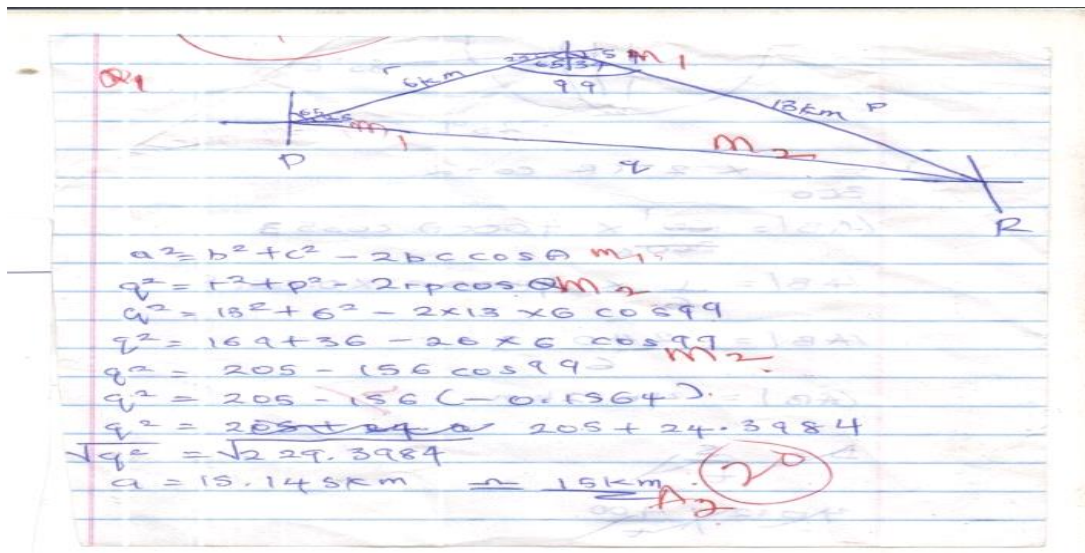 Q1
m1
r
6km
65
99
13km P
m1
m2
P
q
R
a² = b² + c² - 2bccosθ m1
q² = r² + p² - 2rpcosθ m2
q² = 13² + 6² - 2x13 x6 cos99
q² = 169 + 36 - 26 x 6 cos99 m2
q² = 205 - 156 cos99
q² = 205 - 156 (-0.1564).
q² = 205 + 24.3984
√q² = √229.3984
q = 15.145km ≃ 15km. A2 20